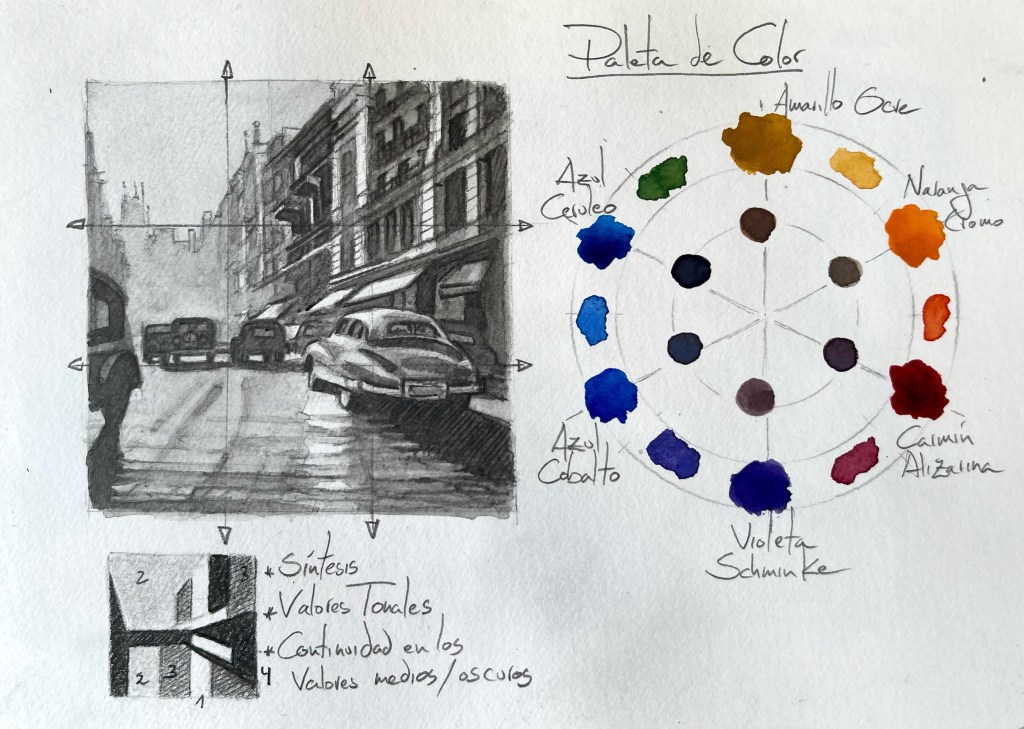 Paleta de Color
Amarillo Ocre
Azul
Ceruleo
Naranja
Cromo
Azul
Cobalto
Carmín
Alizarina
Violeta
Schminke
2
3
2
3
4
1
* Síntesis
* Valores Tonales
* Continuidad en los
Valores medios/oscuros